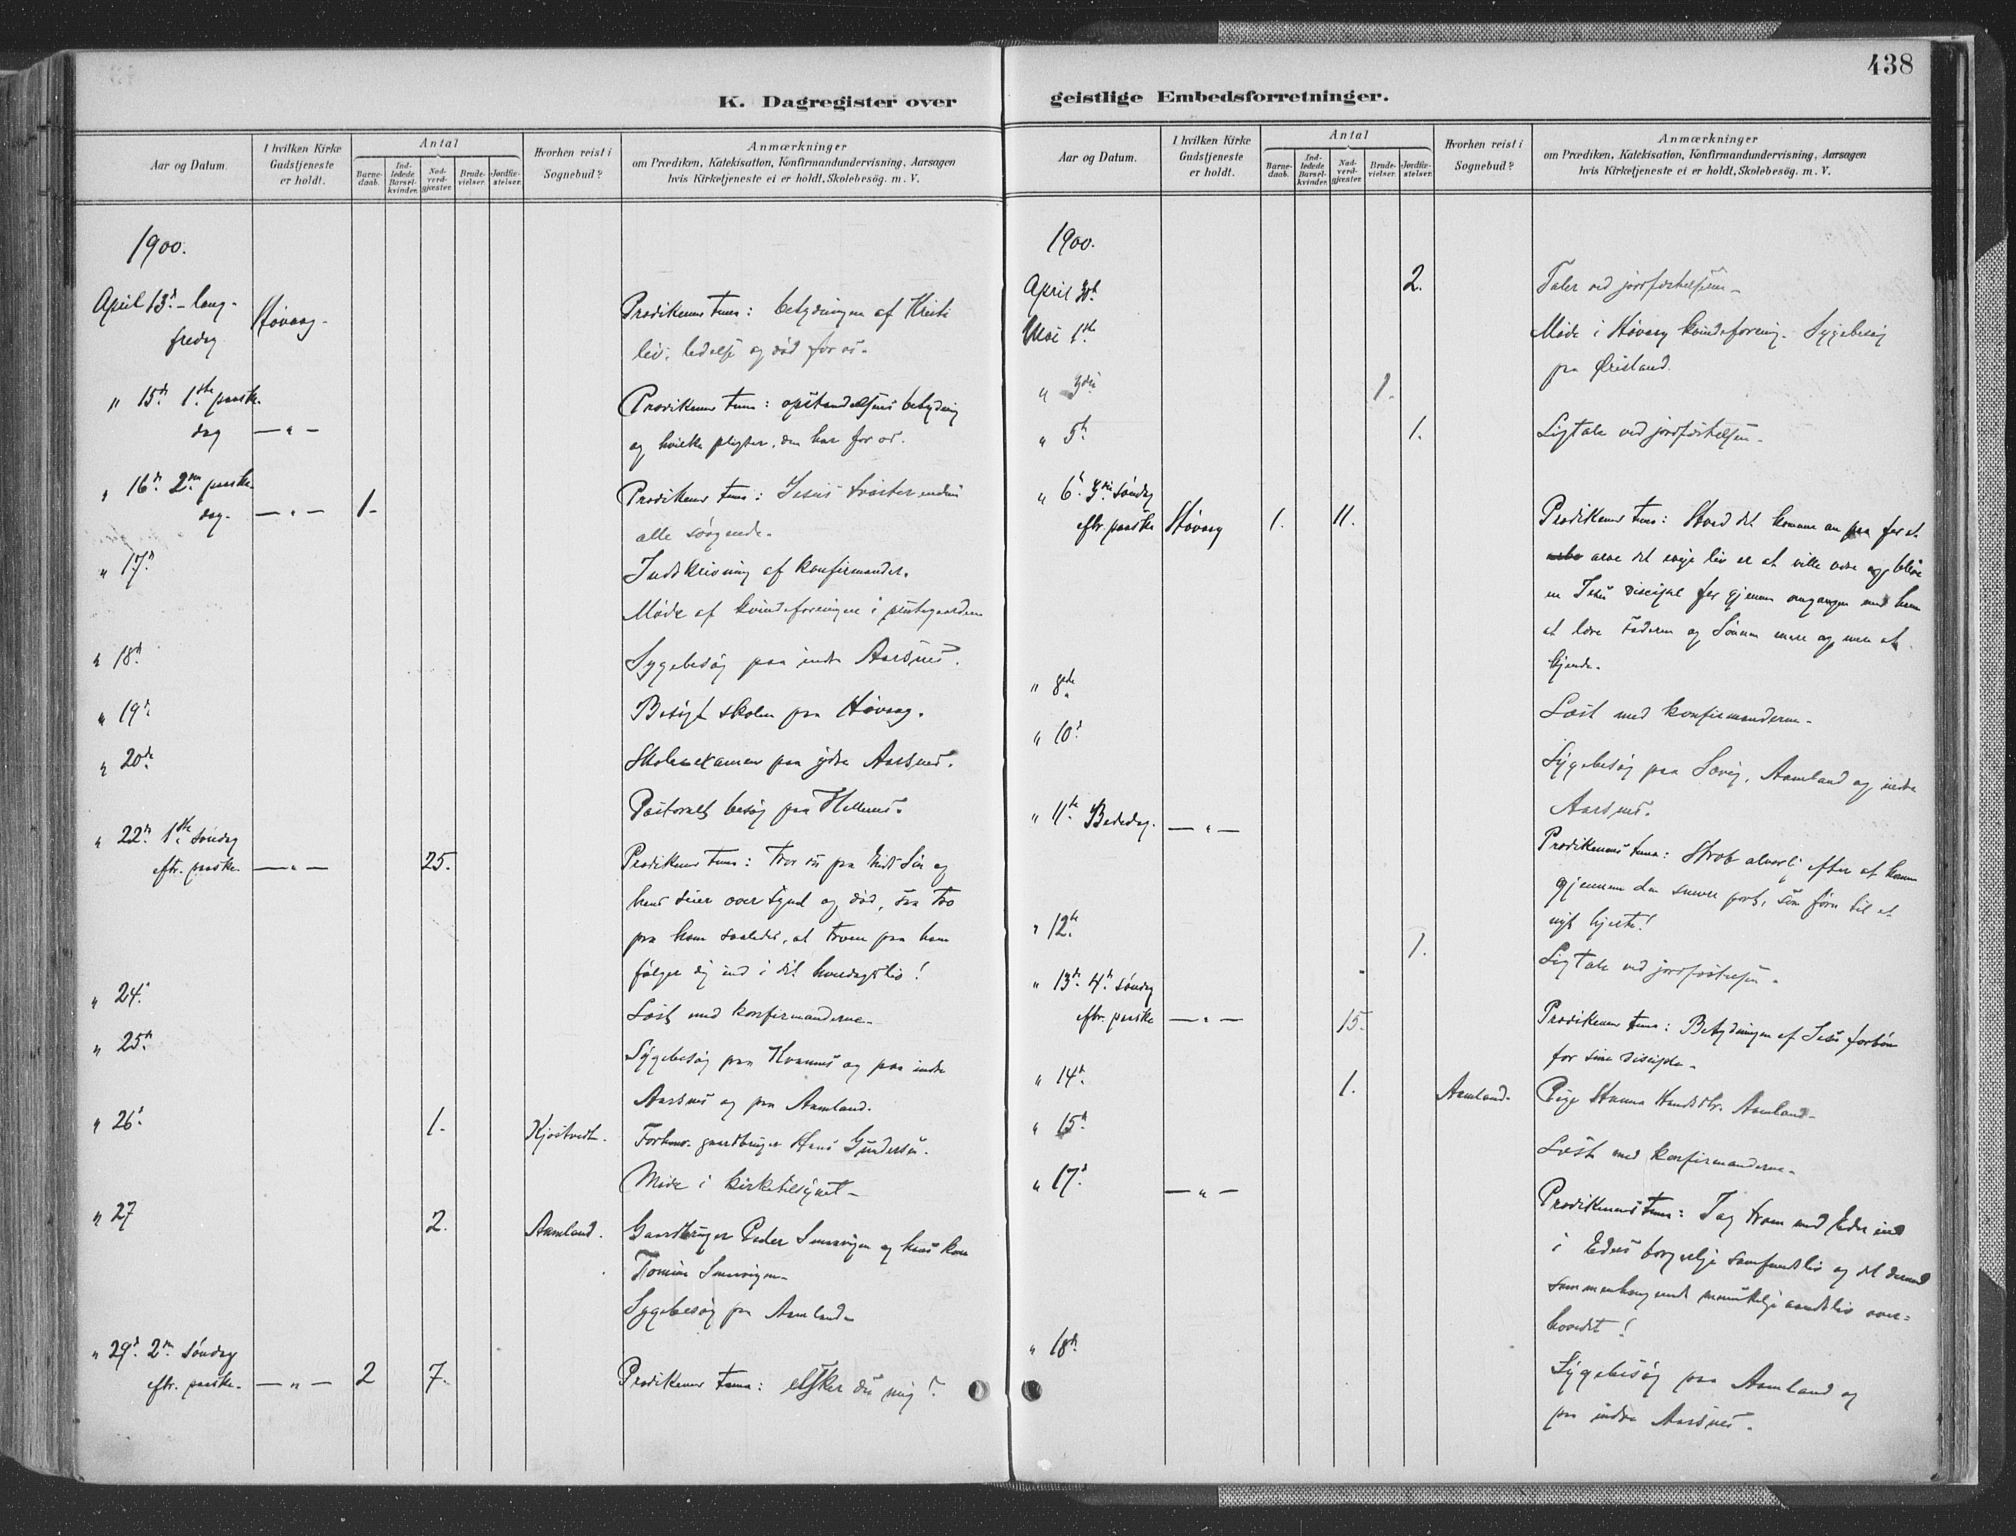 438
K. Dagregister over
geistlige Embedsforretninger.
Aar og Datum.
I hvilken Kirke
Gudstjeneste
er holdt.
Antal
Barne-
daab.
Ind-
ledede
Barsel-
kvinder.
Nad-
verd-
gjæster.
Brude-
vielser.
Jordfæ-
stelser.
Hvorhen reist i
Sognebud?
Anmærkninger
om Prædiken, Katekisation, Konfirmandundervisning, Aarsagen
hvis Kirketjeneste ei er holdt, Skolebesøg. m. V.
1900.
April 13d - lang-
fredag Høvaag. Prædikenens tema: betydningen af Kristi
liv, lidelse og død for os.
" 15d 1ste paaske-
dag — " — Prædikenens tema: opstandelsens betydning
og hvilke pligter, den har for os.
" 16d 2den paaske-
dag. — " — 1. Prædikenens tema: Jesus trøster endnu
alle sørgende.
" 17d Indskrivning af konfirmander.
Møde af kvindeforeningen i prestegaarden
" 18d Sygebesøg paa indre Aarsnes.
" 19d Besøgt skolen paa Høvaag.
" 20de Skoleexamen paa ydre Aarsnes.
Pastoralt besøg paa Hellenes.
" 22n 1ste søndag
eftr. paaske. — " — 25. Prædikenens tema: Tror du paa Guds Søn og
hans seier over synd og død, saa tro
paa ham saaledes, at troen paa ham
følger dig ind i dit hverdagsliv!
" 24d Læst med konfirmanderne.
" 25d Sygebesøg paa Kvannes og paa indre
Aarsnes og paa Aamland.
" 26d 1. Kjøstvedt. Forhenv. gaardbruger Hans Gundersen.
Møde i kirketilsynet.
" 27 2. Aamland. Gaardbruger Peder Semvigen og hans kone
Semvigen.
Sygebesøg paa Aamland.
" 29d 2den søndag
eftr. paaske. — " — 2 7. Prædikenens tema: elsker du mig?
Aar og Datum.
I hvilken Kirke
Gudstjeneste
er holdt.
Antal
Barne-
daab.
Ind-
ledede
Barsel-
kvinder.
Nad-
verd-
gjæster.
Brude-
vielser.
Jordfæ-
stelser.
Hvorhen reist i
Sognebud?
Anmærkninger
om Prædiken, Katekisation, Konfirmandundervisning, Aarsagen
hvis Kirketjeneste ei er holdt, Skolebesøg. m. V.
1900.
April 30te 2. Taler ved jordfæstelsen.
Mai 1ste Møde i Høvaag kvindeforening. Sygebesøg
paa Ørisland.
" 3die 1.
" 5te 1. Ligtale ved jordfæstelsen.
" 6te 3die søndag
eftr. paaske Høvaag 1. 11. Prædikenens tema: Hvad det kommer an paa for at
arve det evige liv er at ville være og blive
en Jesu discipel for gjennem omgangen med ham
at lære Faderen og Sønnen mere og mere at
kjende.
" 8de Læst med konfirmanderne.
" 10d Sygebesøg paa Sævig, Aamland og indre
Aarsnes.
" 11te Bededag. — " — Prædikenens tema: Stræb alvorlig efter at komme
gjennem den snevre port, som fører til et
nyt hjerte!
" 12te 1. Ligtale ved jordfæstelsen.
" 13de 4de søndag
eftr. paaske — " — 15. Prædikenens tema: Betydningen af Jesu forbøn
for sine disciple.
" 14d 1. Aamland. Pige Hanna Aamland.
" 15d Læst med konfirmanderne.
" 17d — " — Prædikenens tema: Tag troen med Eder ind
i Eders borgerlige samfundsliv og det dermed
sammenhængende menneskelige aandsliv over-
hovedet!
" 18d Sygebesøg paa Aamland og
paa indre Aarsnes.